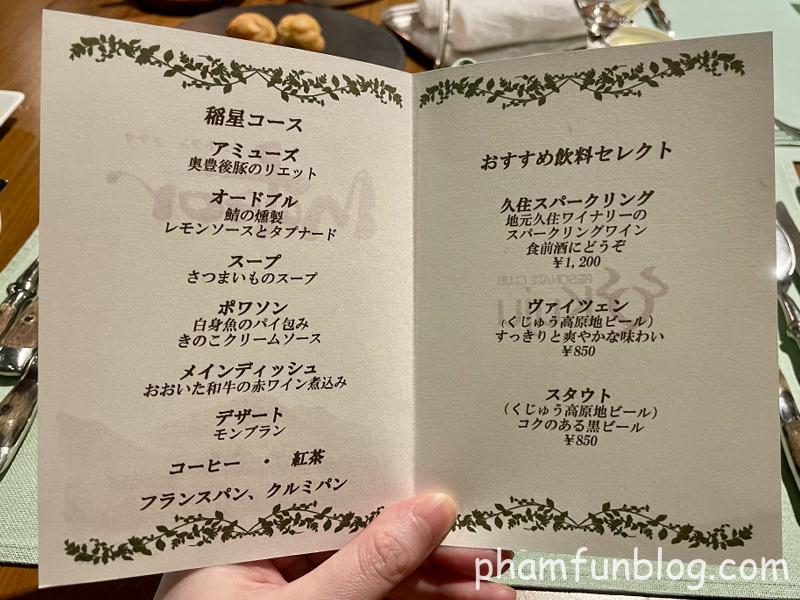 稲星コース
アミューズ
奥豊後豚のリエット
オードブル
鯖の燻製
レモンソースとタプナード
スープ
さつまいものスープ
ポワソン
白身魚のパイ包み
きのこクリームソース
メインディッシュ
おおいた和牛の赤ワイン煮込み
デザート
モンブラン
コーヒー ・ 紅茶
フランスパン、クルミパン
おすすめ飲料セレクト
久住スパークリング
地元久住ワイナリーの
スパークリングワイン
食前酒にどうぞ
￥1,200
ヴァイツェン
(くじゅう高原地ビール)
すっきりと爽やかな味わい
￥850
スタウト
(くじゅう高原地ビール)
コクのある黒ビール
￥850
RESONATE CLUB
phamfunblog.com